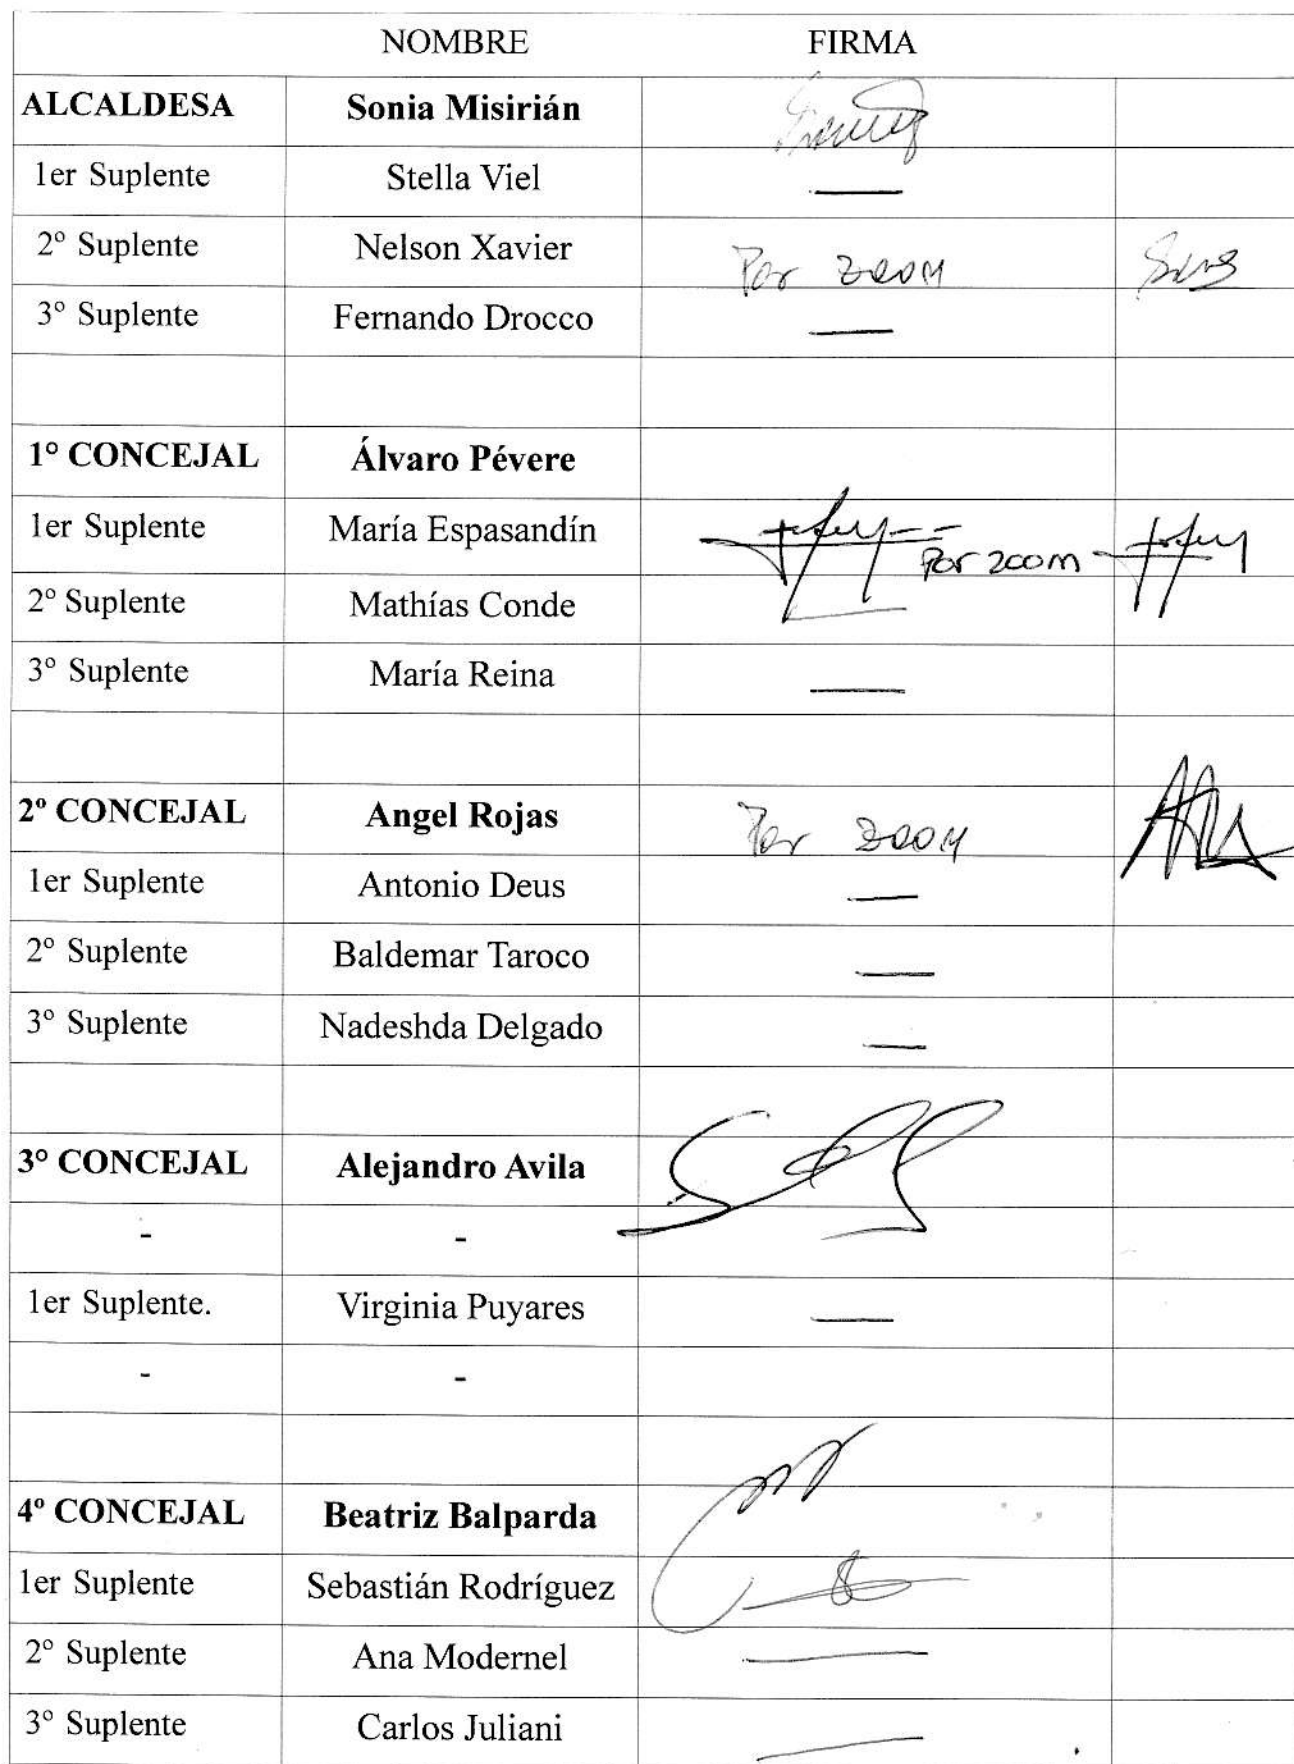 NOMBRE FIRMA
ALCALDESA Sonia Misirián
1er Suplente Stella Viel
2º Suplente Nelson Xavier Por ZOOM
3º Suplente Fernando Drocco
1º CONCEJAL Álvaro Pévere
1er Suplente María Espasandín Por zoom
2º Suplente Mathías Conde
3º Suplente María Reina
2º CONCEJAL Angel Rojas Por ZOOM
1er Suplente Antonio Deus
2º Suplente Baldemar Taroco
3º Suplente Nadeshda Delgado
3º CONCEJAL Alejandro Avila
- -
1er Suplente. Virginia Puyares
- -
4º CONCEJAL Beatriz Balparda
1er Suplente Sebastián Rodríguez
2º Suplente Ana Modernel
3º Suplente Carlos Juliani